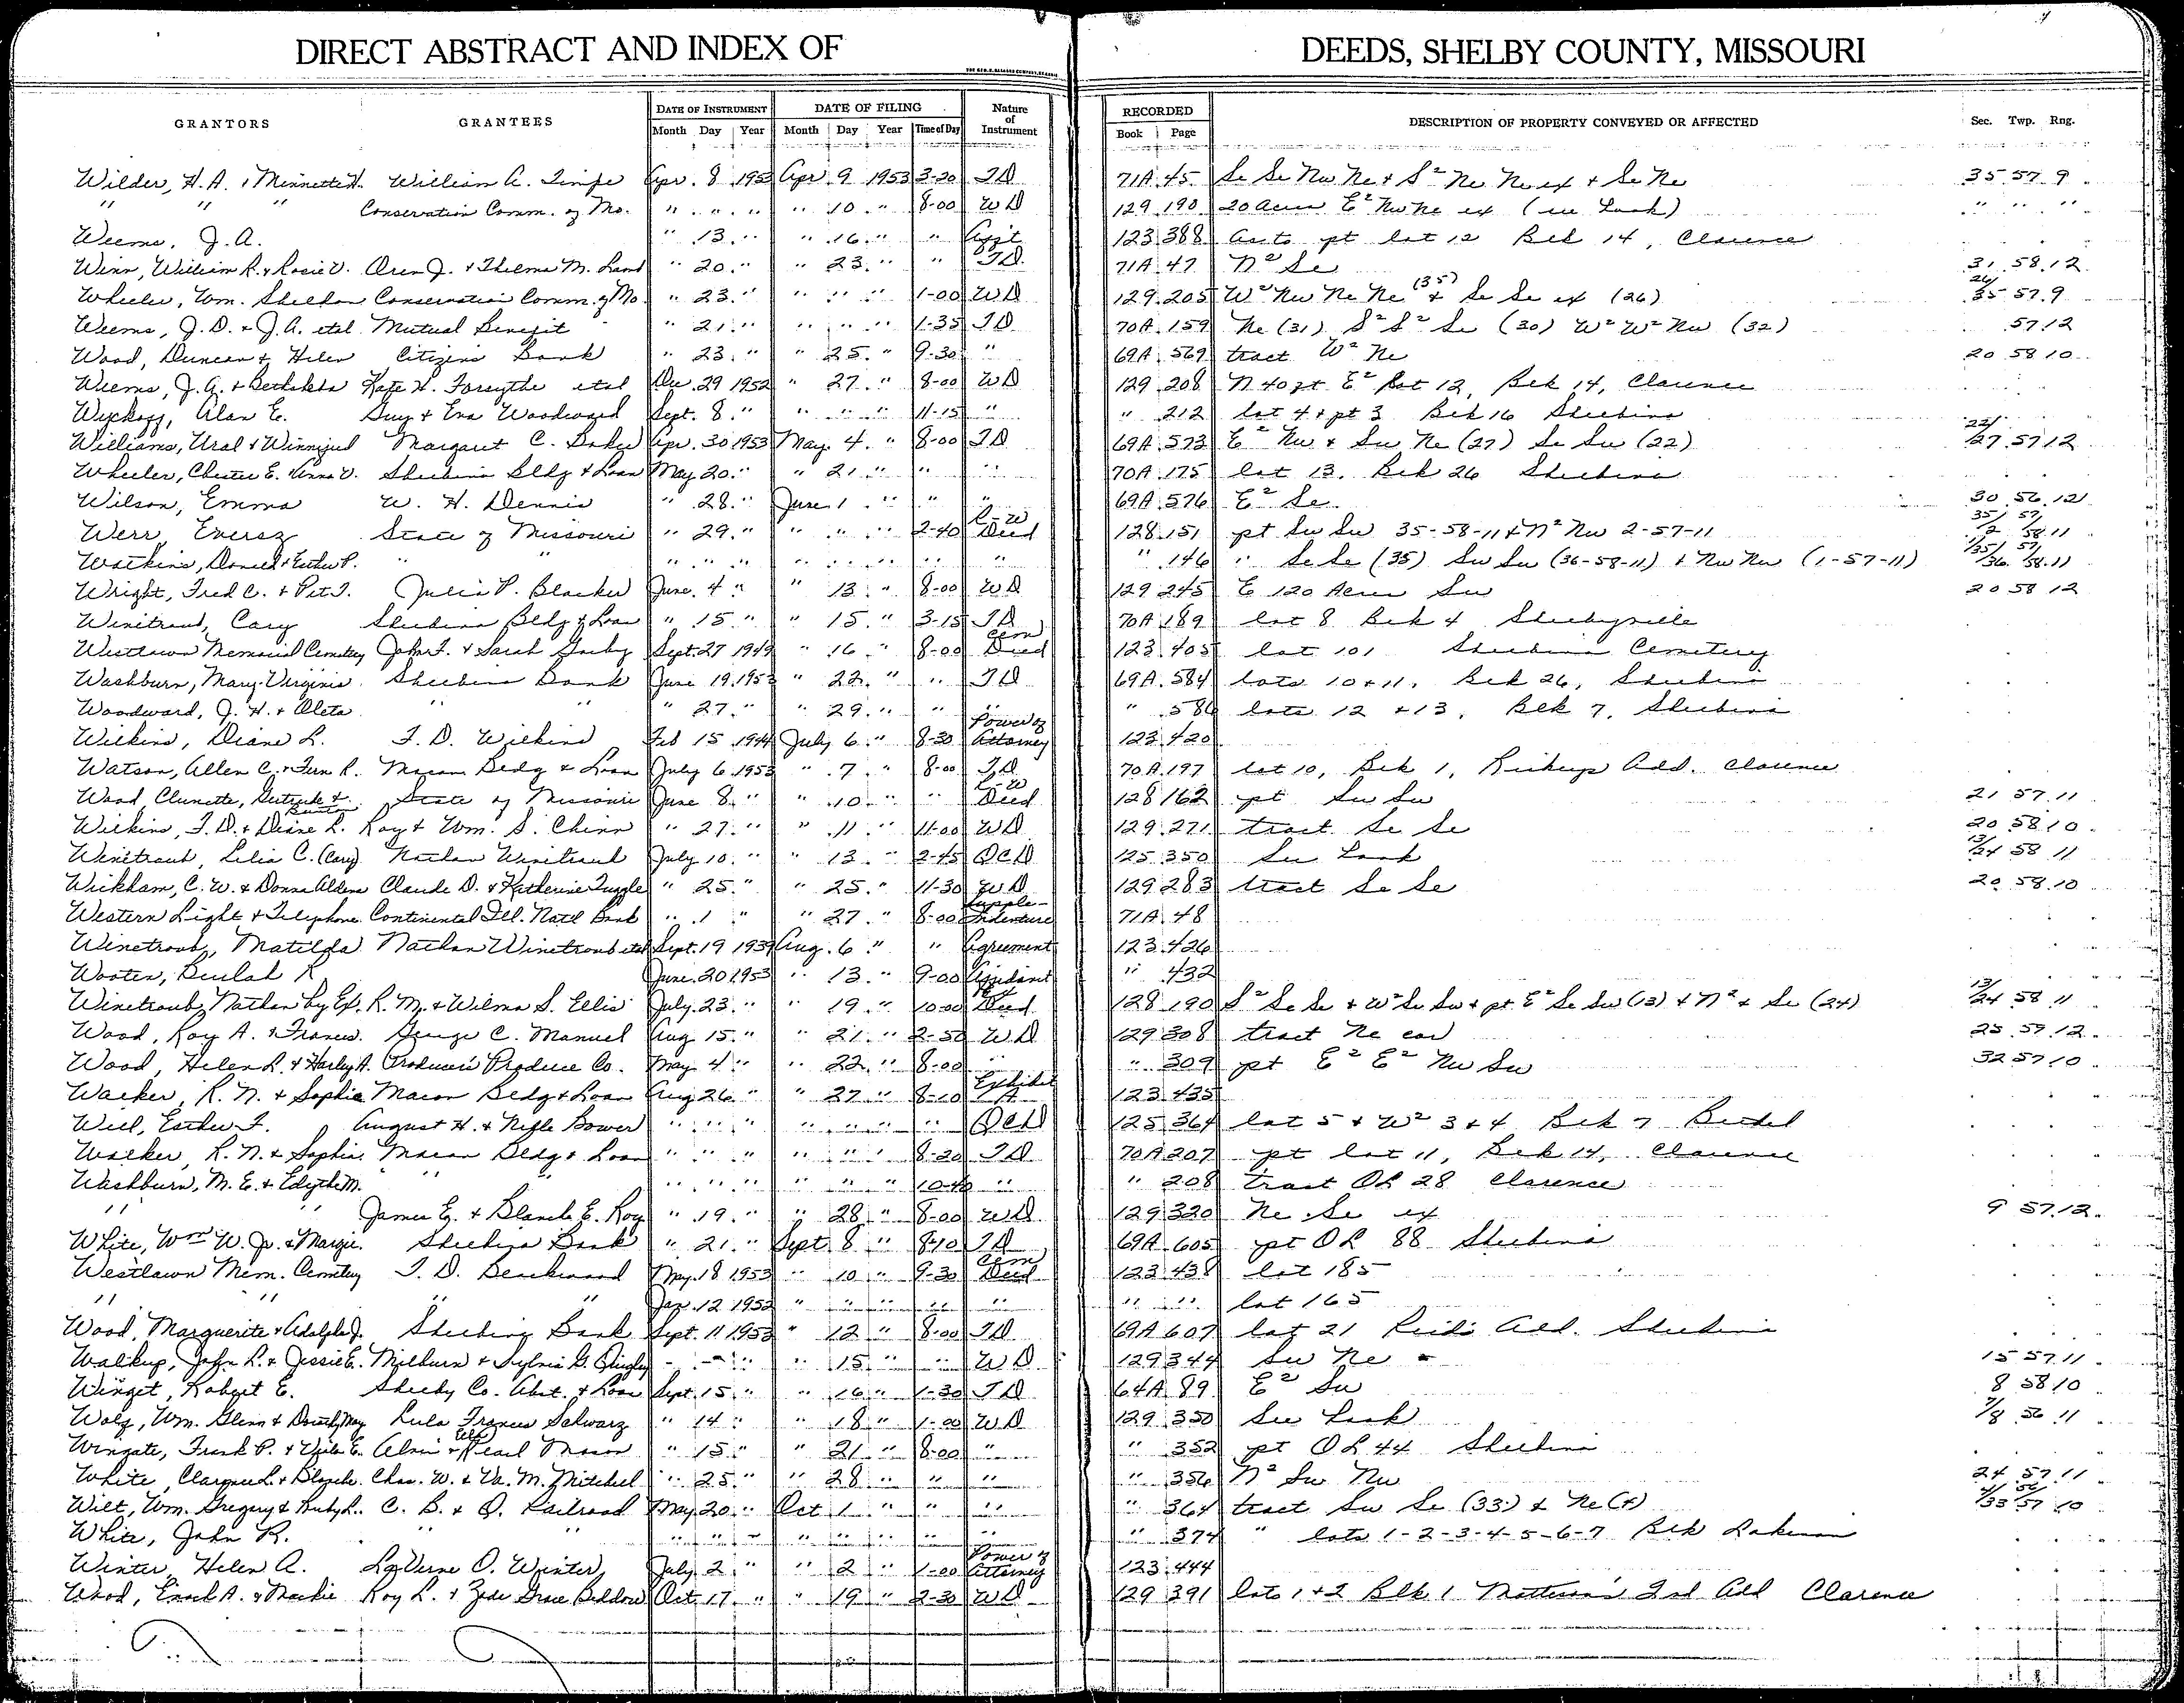 DIRECT ABSTRACT AND INDEX OF DEEDS, SHELBY COUNTY, MISSOURI
GRANTORS GRANTEES DATE OF INSTRUMENT DATE OF FILING Nature of Instrument RECORDED DESCRIPTION OF PROPERTY CONVEYED OR AFFECTED Sec. Twp. Rng.
Month Day Year Month Day Year Time of Day Book Page
Wilder, H. A. & Minnette H. William A. Apr. 8 1953 Apr. 9 1953 3-20 TD 71A 45 Se Se Nw Ne & S² Ne Ne ex & Se Ne 35 57 9
" " " Conservation Comm. of Mo. " " " " 10 " 8-00 WD 129 190 20 acres E² Nw Ne ex (see book) " " "
Weems, J. A. " 13 " " 16 " " 123 388 pt lot 12 Blk 14, Clarence
Winn, William R. & Rosie V. Oren J. & Thelma M. Land " 20 " " 23 " " TD 71A 47 N² Se 31 58 12
Wheeler, Wm. Sheldon Conservation Comm. of Mo. " 23 " " " " 1-00 WD 129 205 W² Nw Ne Ne (35) & Se Se ex (26) 26/35 57 9
Weems, J. D. & J. A. etal Mutual Benefit " 21 " " " " 1-35 TD 70A 159 Ne (31) S² S² Se (30) W² W² Nw (32) 57 12
Wood, Duncan & Helen Citizens Bank " 23 " " 25 " 9-30 " 69A 569 tract W² Ne 20 58 10
Weems, J. A. & Kate H. Forsythe etal Dec. 29 1952 " 27 " 8-00 WD 129 208 N 40 pt E² Lot 12, Blk 14, Clarence
Wyckoff, Alan E. Guy & Eva Woodward Sept. 8 " " " " 11-15 " " 212 lot 4 & pt 3 Blk 16 Shelbina
Williams, Ural & Winnifred Margaret C. Baker Apr. 30 1953 May 4 " 8-00 TD 69A 573 E² Nw & Sw Ne (27) Se Sw (22) 22/27 57 12
Wheeler, Chester E. & Anna V. Shelbina Bldg & Loan May 20 " " 21 " " " 70A 175 lot 13, Blk 26 Shelbina
Wilson, Emma W. H. Dennis " 28 " June 1 " " " 69A 576 E² Se 30 56 12
Werr, Eversz State of Missouri " 29 " " " " 2-40 R-W Deed 128 151 pt Sw Sw 35-58-11 & N² Nw 2-57-11 35/2 57/58 11
Watkins, Donald & Esther P. " " " " " " " " " " " 146 " Se Se (35) Sw Sw (36-58-11) & Nw Nw (1-57-11) 1/35/36 57/58 11
Wright, Fred C. & Julia P. Blacker June 4 " " 13 " 8-00 WD 129 245 E 120 Acres Sw 20 58 12
Winetraub, Cary Shelbina Bldg & Loan " 15 " " 15 " 3-15 TD 70A 189 lot 8 Blk 4 Shelbyville
Westlawn Memorial Cemetery John F. & Sarah Sept. 27 1949 " 16 " 8-00 Cem Deed 123 405 lot 101 Shelbina Cemetery
Washburn, Mary Virginia Shelbina Bank June 19 1953 " 22 " " TD 69A 584 lots 10 & 11, Blk 26, Shelbina
Woodward, J. H. & Oleta " " " 27 " " 29 " " " " 586 lots 12 & 13, Blk 7, Shelbina
Wilkins, Diane L. F. D. Wilkins Feb 15 1944 July 6 " 8-30 Power of Attorney 123 420
Watson, Allen C. & Fern R. Macon Bldg & Loan July 6 1953 " 7 " 8-00 TD 70A 197 lot 10, Blk 1, Add. Clarence
Wood, Clunette, Gertrude & State of Missouri June 8 " " 10 " " R-W Deed 128 162 pt Sw Sw 21 57 11
Wilkins, F. D. & Diane L. Roy & Wm. S. Chinn " 27 " " 11 " 11-00 WD 129 271 tract Se Se 20 58 10
Winetraub, Lelia C. (Cary) Nathan Winetraub July 10 " " 13 " 2-45 QCD 125 350 See book 13/24 58 11
Wickham, C. W. & Donna Aldene Claude D. & Katherine Tuggle " 25 " " 25 " 11-30 WD 129 283 tract Se Se 20 58 10
Western Light & Telephone Continental Ill. Natl Bank " 1 " " 27 " 8-00 Supple- Indenture 71A 48
Winetroub, Matilda Nathan Winetroub etal Sept. 19 1939 Aug. 6 " " Agreement 123 426
Wooten, Beulah K. June 20 1953 " 13 " 9-00 Affidavit " 432
Winetroub, Nathan by Ex. R. M. & Wilma S. Ellis July 23 " " 19 " 10-00 Deed 128 190 S² Se Se & W² Se Sw & pt E² Se Sw (13) & N² & Se (24) 13/24 58 11
Wood, Roy A. & Frances George C. Manuel Aug 15 " " 21 " 2-50 WD 129 308 tract Ne cor 25 57 12
Wood, Helen L. & Harley A. Producers Produce Co. May 4 " " 22 " 8-00 " " 309 pt E² E² Nw Sw 32 57 10
Walker, R. N. & Sophia Macon Bldg & Loan Aug 26 " " 27 " 8-20 Exhibit A 123 435
Will, Esther F. August H. & Bower " " " " " " " QCD 125 364 lot 5 & W² 3 & 4 Blk 7 Bethel
Walker, R. N. & Sophia Macon Bldg & Loan " " " " " " 8-20 TD 70A 207 pt lot 11, Blk 14, Clarence
Washburn, M. E. & Edythe M. " " " " " " " 10-40 " " 208 tract OL 28 Clarence
" " James E. & Blanche E. Roy " 19 " " 28 " 8-00 WD 129 320 Ne Se ex 9 57 12
White, Wm W. Jr. & Margie Shelbina Bank " 21 " Sept. 8 " 8-10 TD 69A 605 pt OL 88 Shelbina
Westlawn Mem. Cemetery May 18 1953 " 10 " 9-30 Cem Deed 123 438 lot 185
" " " " Jan. 12 1952 " " " " " " " lot 165
Wood, Marguerite & Adolph J. Shelbina Bank Sept. 11 1953 " 12 " 8-00 TD 69A 607 lot 21 Add. Shelbina
Walkup, John L. & Jessie E. Milburn & Sylvia G. Quigley - - " " 15 " " WD 129 344 Sw Ne 15 57 11
Winget, Robert E. Shelby Co. Abst. & Loan Sept. 15 " " 16 " 1-30 TD 64A 89 E² Sw 8 58 10
Wolf, Wm. Glenn & Dorothy May Lula Frances Schwarz " 14 " " 18 " 1-00 WD 129 350 See book 7/8 56 11
Wingate, Frank P. & Alvin & Pearl Mason " 15 " " 21 " 8-00 " " 352 pt OL 44 Shelbina
White, Clarence L. & Blanche Chas. W. & Va. M. Mitchell " 25 " " 28 " " " " 356 N² Sw Nw 24 57 11
Wilt, Wm. Gregory & Ruby L. C. B. & Q. Railroad May 20 " Oct 1 " " " " 364 tract Sw Se (33) & Ne (4) 4/33 56/57 10
White, John R. " " " " " " " " " " " 374 " lots 1-2-3-4-5-6-7 Blk Lakenan
Winter, Helen A. LaVerne O. Winter July 2 " " 2 " 1-00 Power of Attorney 123 444
Wood, Enoch A. & Roy L. & Grace Beddow Oct. 17 " " 19 " 2-30 WD 129 391 lots 1 & 2 Blk 1 2nd Add Clarence